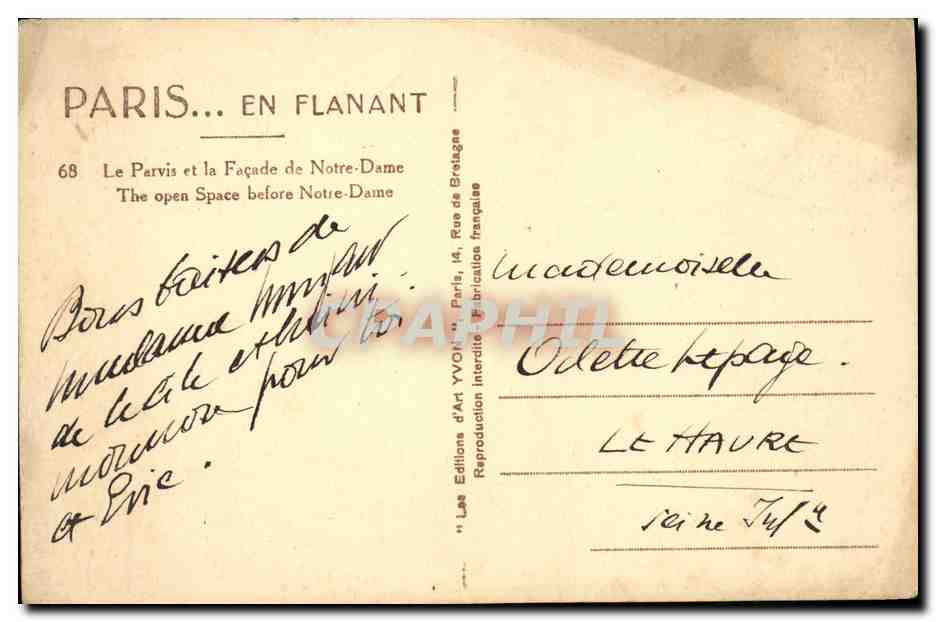 PARIS... EN FLANANT
68 Le Parvis et la Façade de Notre-Dame
The open Space before Notre-Dame
Bons baisers de
madame
de
pour toi.
et Eric.
"Les Editions d'Art YVON", Paris, 14, Rue de Bretagne
Reproduction interdite Fabrication française
CPAPHIL
Mademoiselle
Odette Lepage.
LE HAVRE
Seine Infre